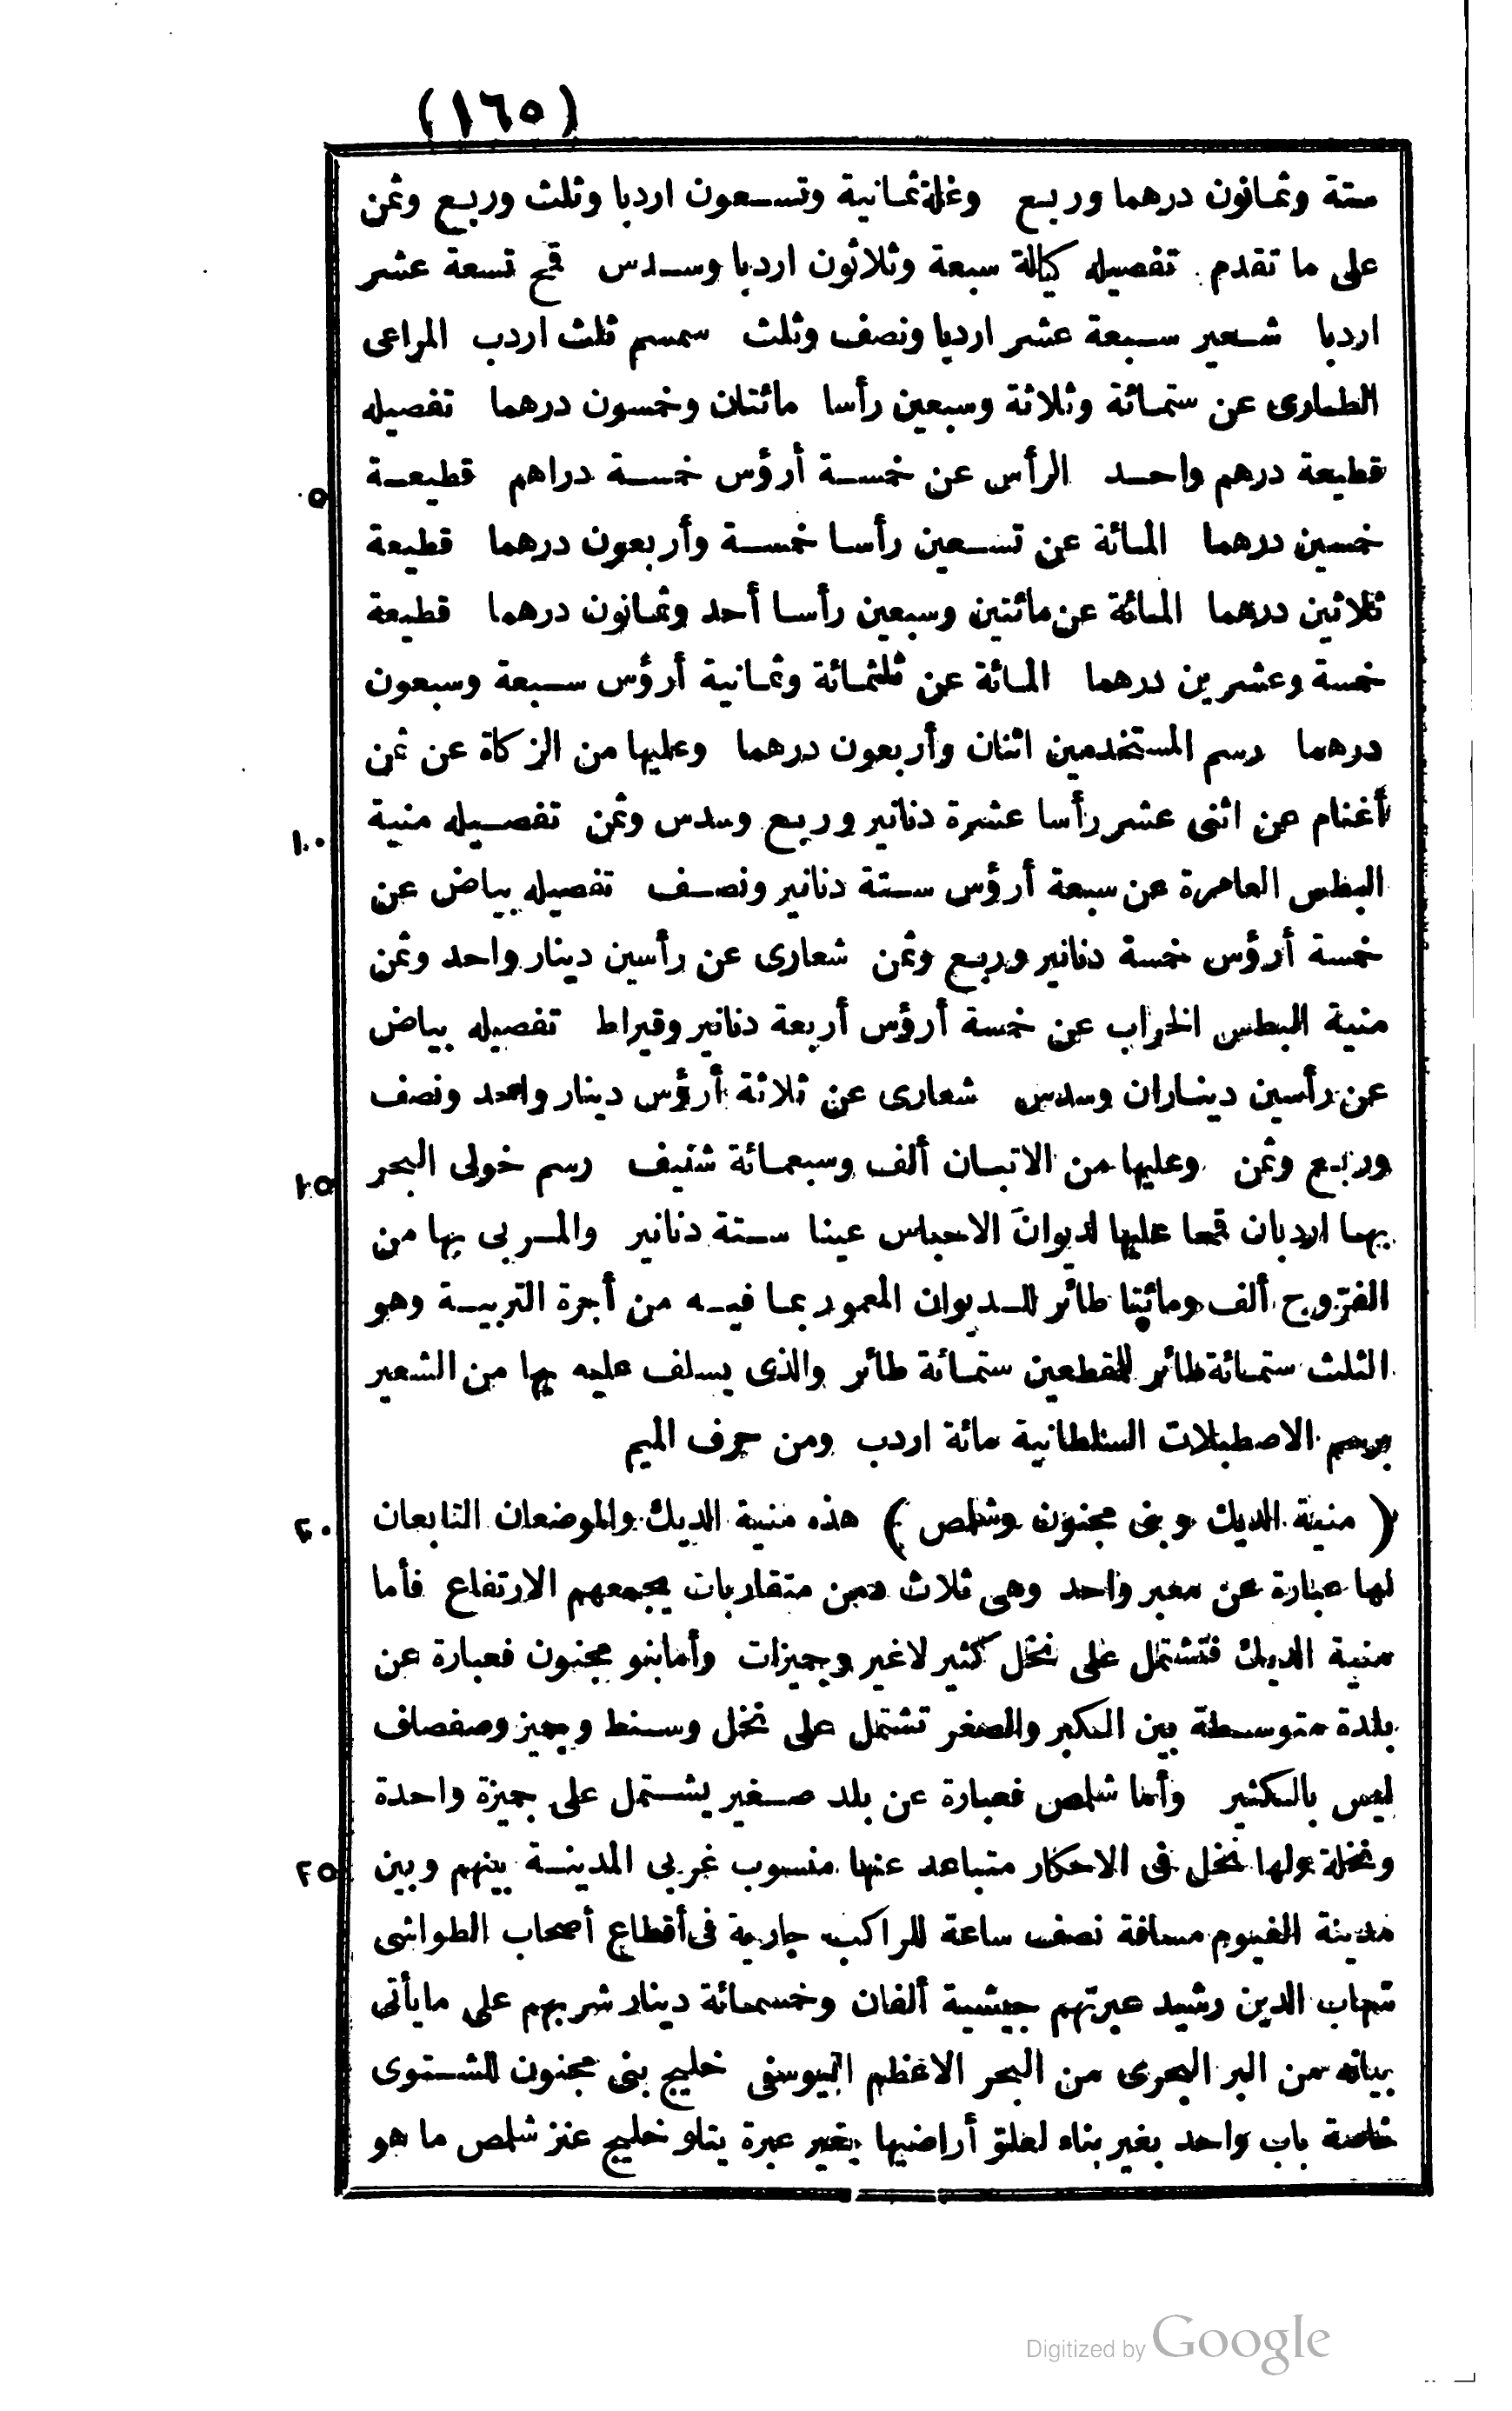 (١٦٥)
ستة وثمانون درهما وربع وغلة ثمانية وتسعون اردبا وثلث وربع وثمن
على ما تقدم تفصيله كيالة سبعة وثلاثون اردبا وسدس قمح تسعة عشر
اردبا شعير سبعة عشر اردبا ونصف وثلث سمسم ثلث اردب المراعى
الطارى عن ستمائة وثلاثة وسبعين رأسا مائتان وخمسون درهما تفصيله
قطيعة درهم واحد الرأس عن خمسة أرؤس خمسة دراهم قطيعة
٥
خمسين درهما المائة عن تسعين رأسا خمسة وأربعون درهما قطيعة
ثلاثين درهما المائة عن مائتين وسبعين رأسا أحد وثمانون درهما قطيعة
خمسة وعشرين درهما المائة عن ثلثمائة وثمانية أرؤس سبعة وسبعون
درهما رسم المستخدمين اثنان وأربعون درهما وعليها من الزكاة عن ثمن
أغنام عن اثنى عشر رأسا عشرة دنانير وربع وسدس وثمن تفصيله منية
١٠
البطس العامرة عن سبعة أرؤس ستة دنانير ونصف تفصيله بياض عن
خمسة أرؤس خمسة دنانير وربع وثمن شعارى عن رأسين دينار واحد وثمن
منية البطس الخراب عن خمسة أرؤس أربعة دنانير وقيراط تفصيله بياض
عن رأسين ديناران وسدس شعارى عن ثلاثة أرؤس دينار واحد ونصف
وربع وثمن وعليها من الاتبان ألف وسبعمائة شنيف رسم خولى البحر
١٥
بها اردبان قمحا عليها لديوان الاحباس عينا ستة دنانير والمربى بها من
الفرّوج ألف ومائتا طائر للديوان المعمور بما فيه من أجرة التربية وهو
الثلث ستمائة طائر للمقطعين ستمائة طائر والذى يسلف عليه بها من الشعير
برسم الاصطبلات السلطانية مائة اردب ومن حرف الميم
(منية الديك وبنى مجنون وشلمص) هذه منية الديك والموضعان التابعان
٢٠
لها عبارة عن معبر واحد وهى ثلاث متقاربات يجمعهم الارتفاع فأما
منية الديك فتشتمل على نخل كثير لا غير وجميزات وأما بنو مجنون فعبارة عن
بلدة متوسطة بين الكبر والصغر تشتمل على نخل وسنط وجميز وصفصاف
ليس بالكثير وأما شلمص فعبارة عن بلد صغير يشتمل على جميزة واحدة
ونخلة ولها نخل فى الاحكار متباعد عنها منسوب غربى المدينة بينهم وبين
٢٥
مدينة الفيوم مسافة نصف ساعة للراكب جارية فى أقطاع أصحاب الطواشى
شهاب الدين رشيد عبرتهم جيشية ألفان وخمسمائة دينار شربهم على ما يأتى
بيانه من البر البحرى من البحر الاعظم اليوسفى خليج بنى مجنون للشتوى
خاصة باب واحد بغير بناء لعلق أراضيها بغير عبرة يتلو خليج عنز شلمص ما هو
Digitized by Google